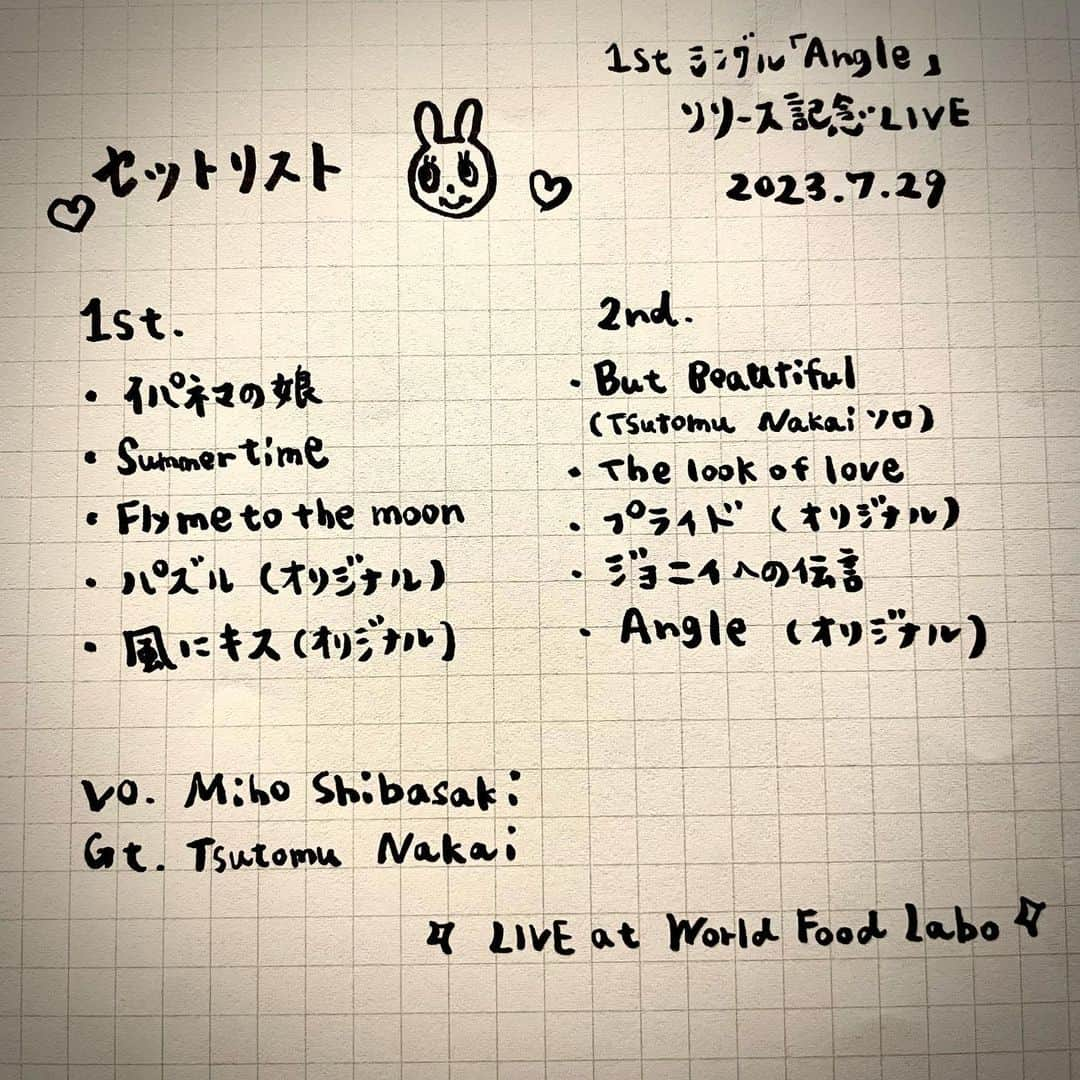 1st シングル「Angle」
リリース記念LIVE
2023.7.29
セットリスト
1st.
・イパネマの娘
・Summertime
・Fly me to the moon
・パズル(オリジナル)
・風にキス(オリジナル)
2nd.
・But Beautiful
(Tsutomu Nakai ソロ)
・The look of love
・プライド(オリジナル)
・ジョニイへの伝言
・Angle (オリジナル)
Vo. Miho Shibasaki
Gt. Tsutomu Nakai
LIVE at World Food Labo